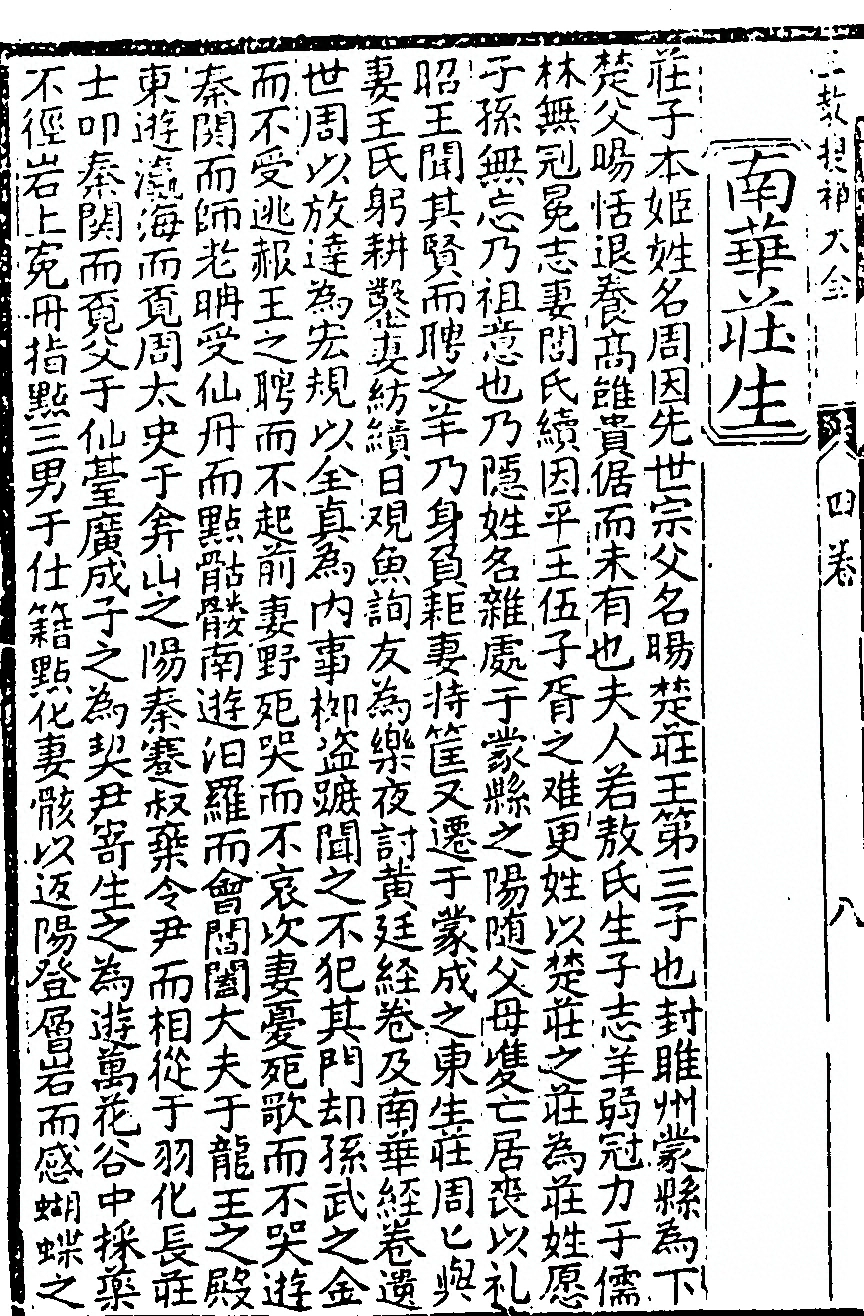 三教捜神大全 四卷 八
南華莊生
莊子本姬姓名周因先世宗父名暘楚莊王第三子也封睢州蒙縣為下
楚父暘恬退養髙雖貴倨而未有也夫人若敖氏生子志羊弱冠力于儒
林無冠冕志妻閻氏續因平王伍子胥之难更姓以楚莊之莊為莊姓愿
子孫無忘乃祖意也乃隱姓名雜處于蒙縣之陽随父母雙亡居喪以礼
昭王聞其賢而聘之羊乃身負耟妻持筐又遷于蒙成之東生莊周匕與
妻王氏躬耕鑿妻紡績日观魚詢友為樂夜討黄廷経卷及南華経卷遺
世周以放達為宏規以全真為内事柳盗蹠聞之不犯其門却孫武之金
而不受逃赧王之聘而不起前妻野死哭而不哀次妻憂死歌而不哭遊
秦関而師老聃受仙丹而點骷髅南遊汨羅而會閭閤大夫于龍王之殿
東遊瀛海而覔周太史于弇山之陽秦蹇叔棄令尹而相從于羽化長莊
士叩秦関而覔父于仙䑓廣成子之為契尹寄生之為遊萬花谷中採薬
不徑岩上寃丹指點三男于仕籍點化妻骸以返陽登層岩而感蝴蝶之